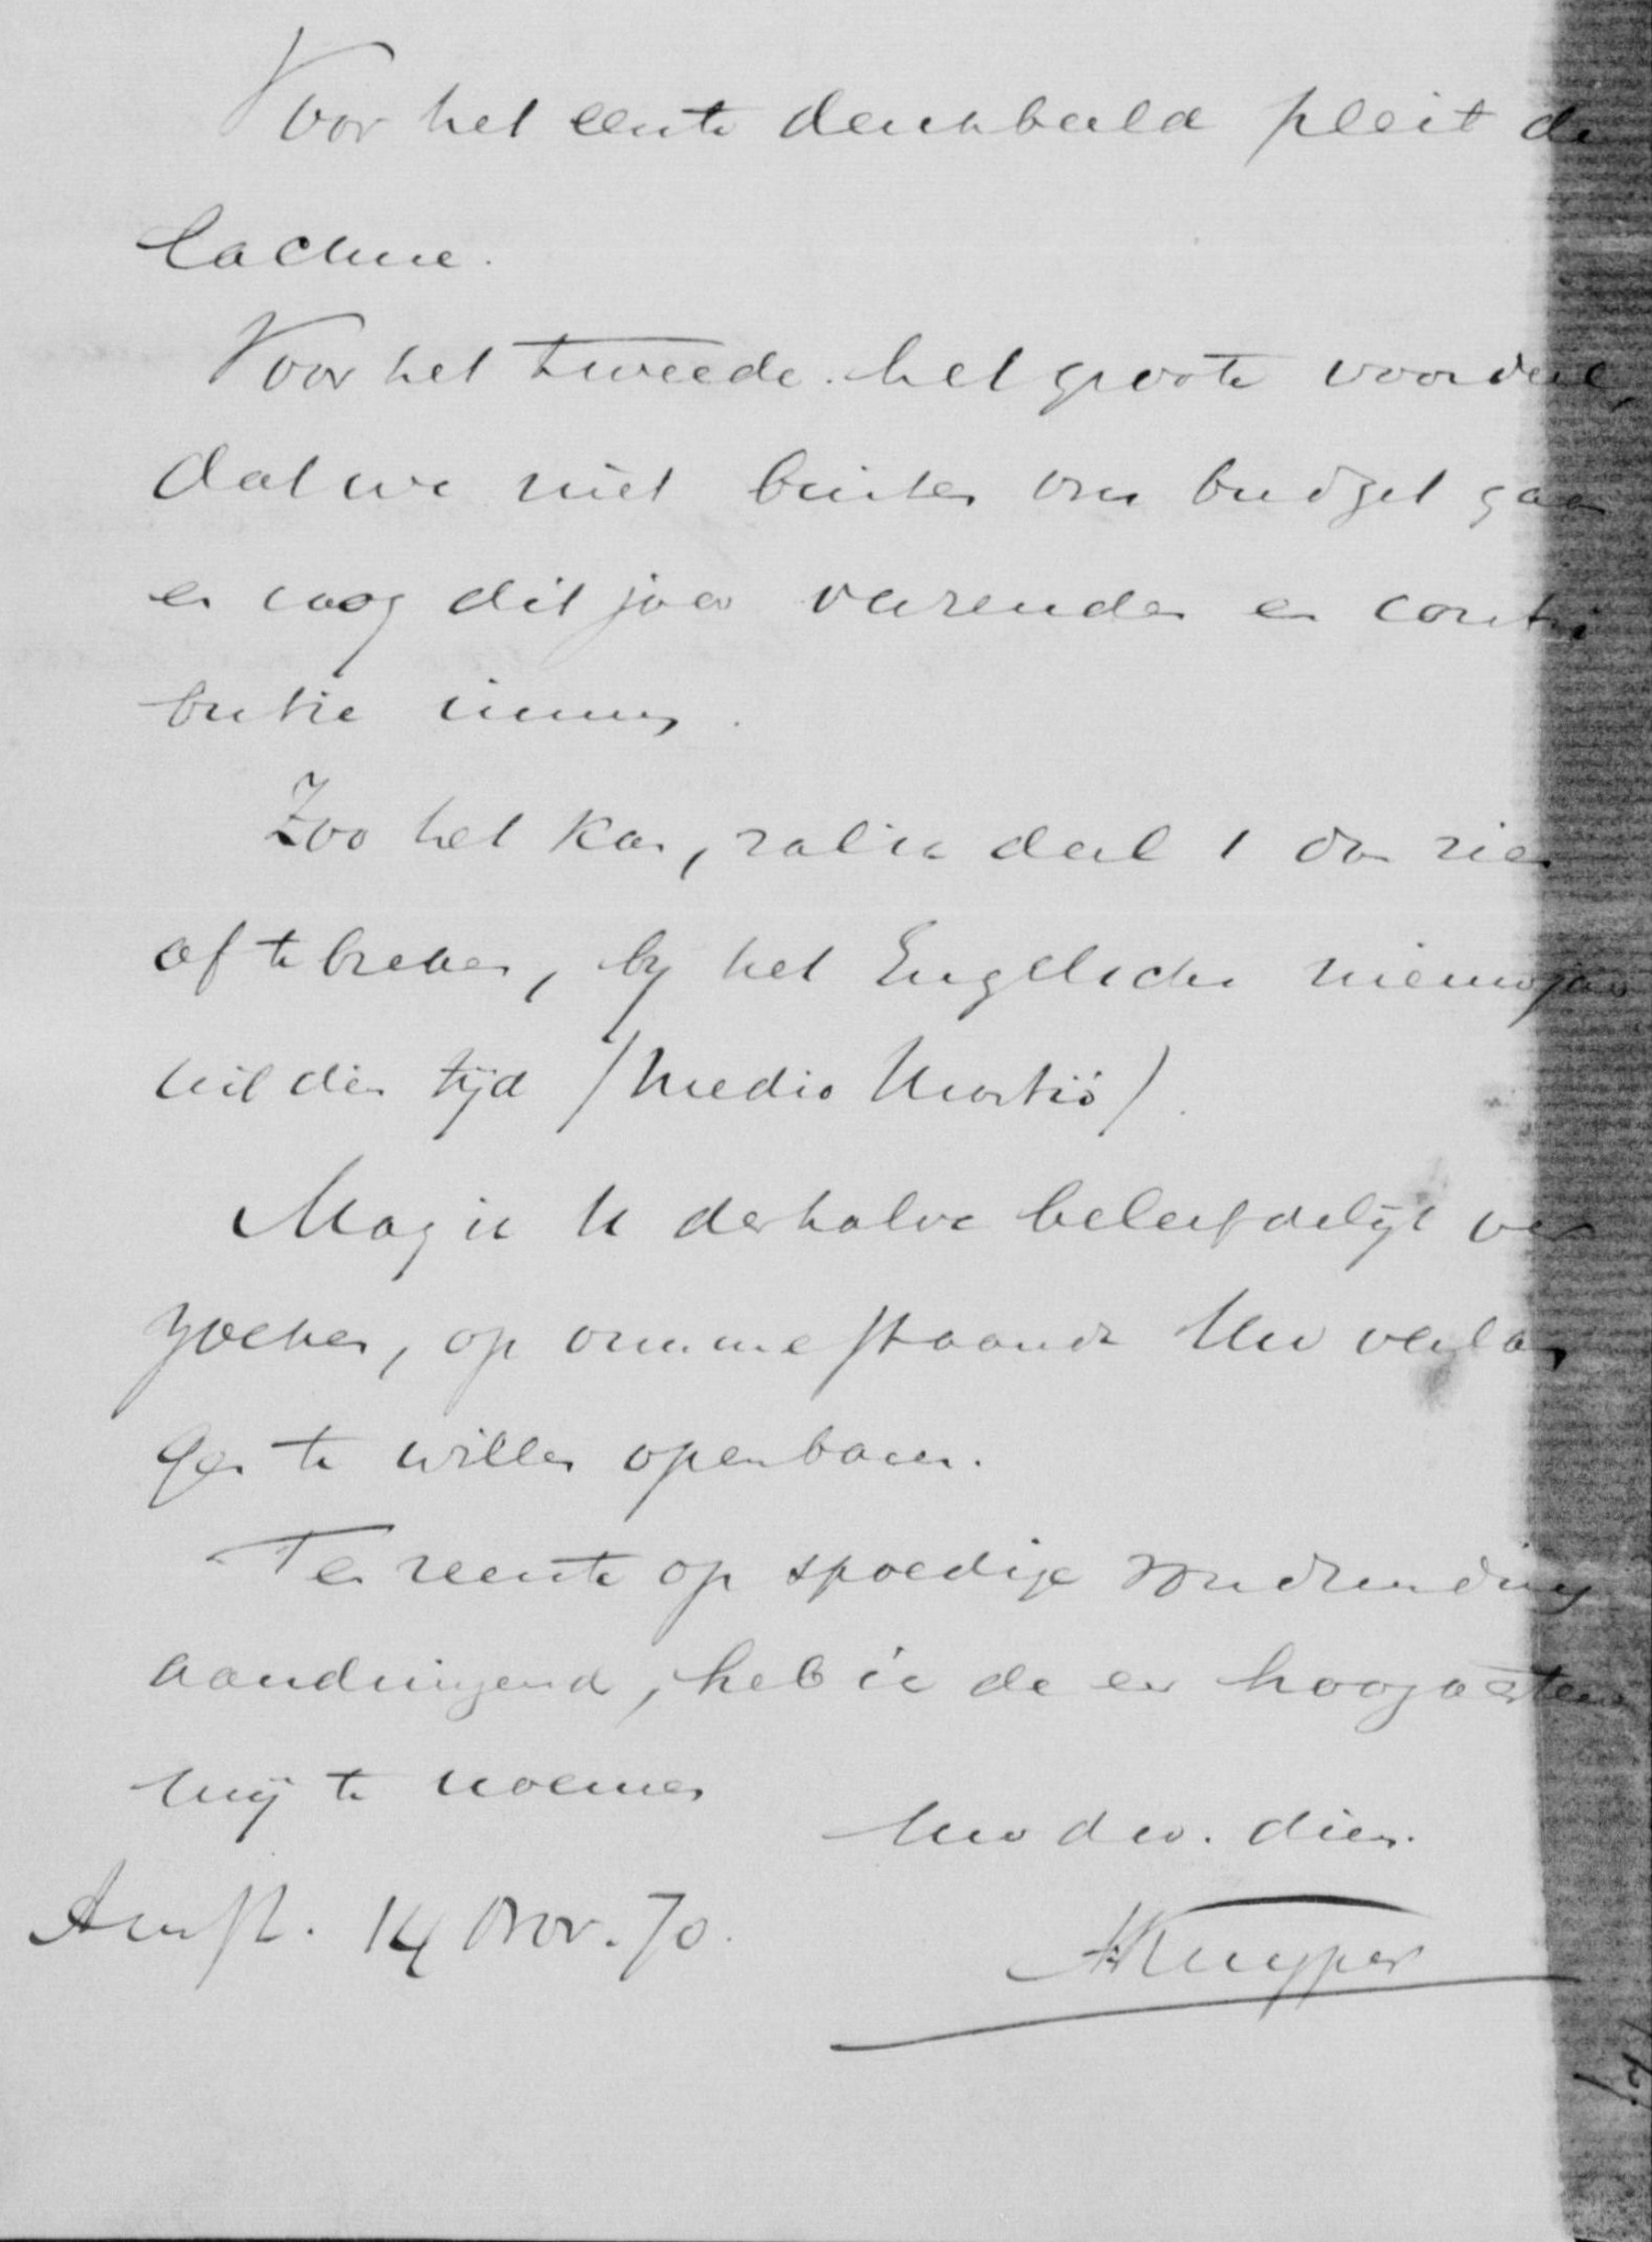 Voor het eerste denkbeeld pleit de
lacune.
Voor het tweede. het groote voordeel,
dat we niet buiten ons budget gaan
en nog dit jaar verzenden en contri
butie innen.
Zoo het kan, zal ik deel 1 dan zien
af te breken, by het Engelsche nieuwjaar
uit dien tijd (medio Martii).
Mag ik U derhalve beleefdelijk ver
zoeken, op ommestaande Uw verlan
gen te willen openbaren.
Ten zeerste op spoedige
aandringend, heb ik de eer hoogachtend
mij te noemen
Uw dw. dien.
Amst. 14 Nov. 70.
AKuyper